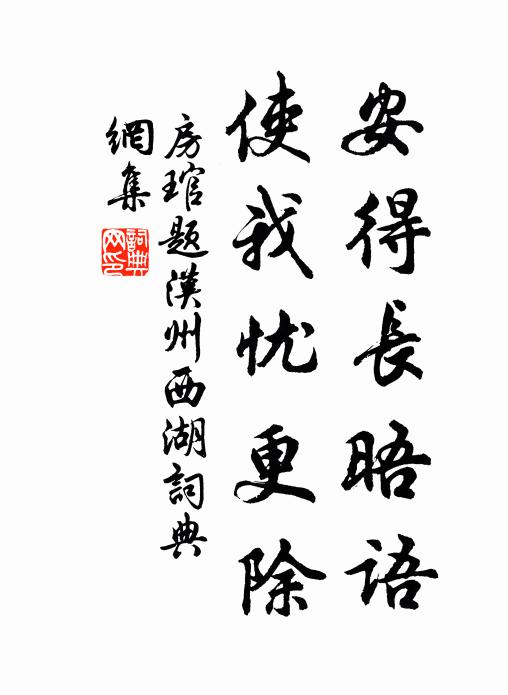 安得長晤语
使我忧更除
房琯题漢州西湖詞典
網集
詞典网印